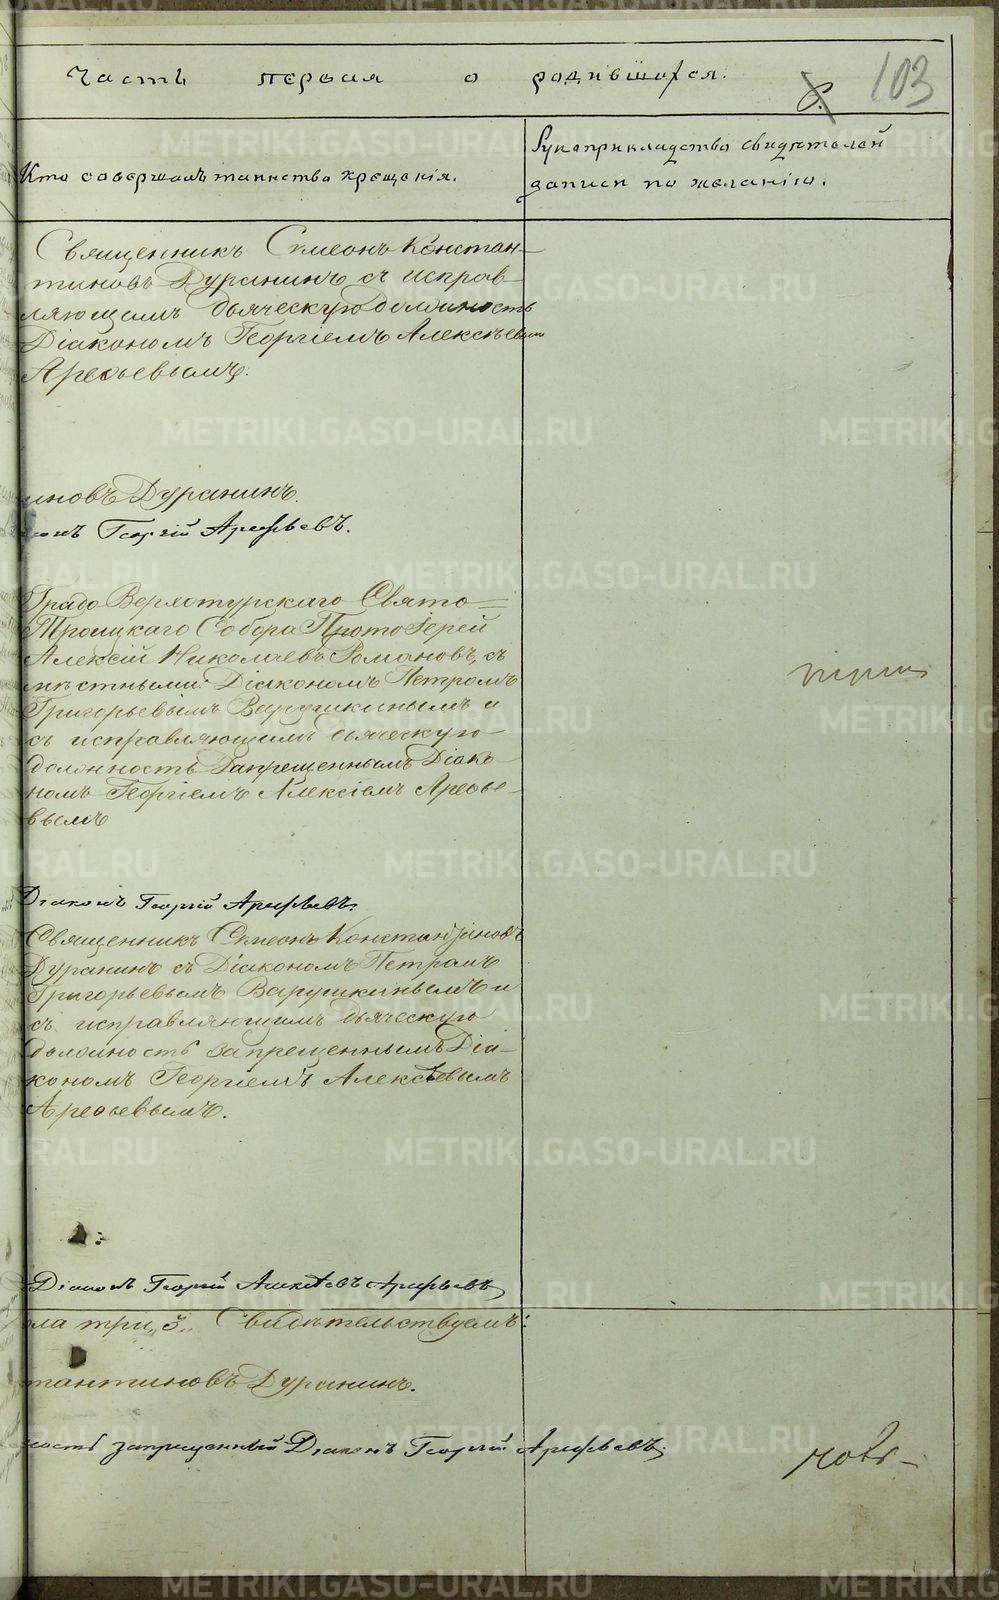 Часть первая о родившихся.
103
Кто совершалъ таинство крещенія.
Рукоприкладство свидѣтелей
записи по желанію.
Священникъ Симеонъ Констан-
тиновъ Дуранинъ съ исправ-
ляющимъ дьяческую должность
Діакономъ Георгіемъ Алексѣевымъ
Арефьевымъ.
иновъ Дуранинъ.
конъ Георгій Арефьевъ.
Градо Верхотурскаго Свято-
Троицкаго Собора Протоіерей
Алексій Николаевъ Романовъ, съ
мѣстными: Діакономъ Петромъ
Григорьевымъ Варушкинымъ и
съ исправляющимъ дьяческую
должность Запрещеннымъ Діако-
номъ Георгіемъ Алексіемъ Арефье-
вымъ
Діаконъ Георгій Арефьевъ.
Священникъ Симеонъ Константиновъ
Дуранинъ съ Діакономъ Петромъ
Григорьевымъ Варушкинымъ и
съ исправляющимъ дьяческую
должность запрещеннымъ Діа-
кономъ Георгіемъ Алексѣевымъ
Арефьевымъ.
Діаконъ Георгій Алексѣевъ Арефьевъ
ола три „3„ Свидѣтельствуемъ:
тантиновъ Дуранинъ.
ность запрещенный Діаконъ Георгій Арефьевъ.
METRIKI.GASO-URAL.RU